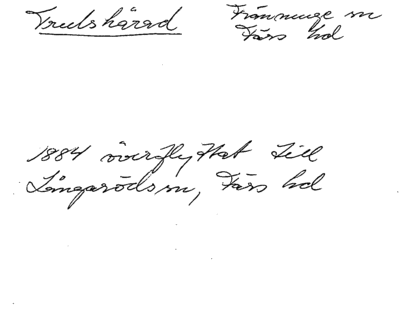 Trulshärad
Fränninge sn
Färs hd
1884 överflyttat till
Långarödssn, Färs hd